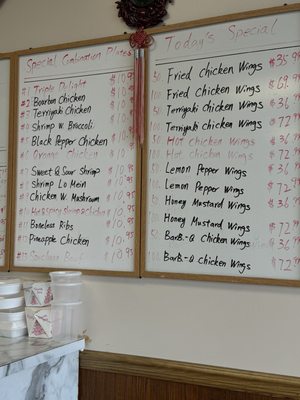 Special Combination Plates
#1 Triple Delight $10.95
#2 Bourbon Chicken $10.95
#3 Terriyaki Chicken $10.95
#4 Shrimp w. Broccoli $10.95
#5 Black Pepper Chicken $10.95
#6 Orange Chicken $10.95
#7 Sweet & Sour Shrimp $10.95
#8 Shrimp Lo Mein $10.95
#9 Chicken w. Mushroom $10.95
#10 $10.95
#11 Boneless Ribs $10.95
#12 Pineapple Chicken $10.95
Today's Special
50 Fried Chicken Wings $35
100 Fried Chicken Wings $69
50 Terriyaki Chicken Wings $36
100 Terriyaki Chicken Wings $72
50 Hot Chicken Wings $36
100 Hot Chicken Wings $72
50 Lemon Pepper Wings $36
100 Lemon Pepper Wings $72
50 Honey Mustard Wings $36
100 Honey Mustard Wings $72
50 BarB-Q Chicken Wings $36
100 BarB-Q Chicken Wings $72